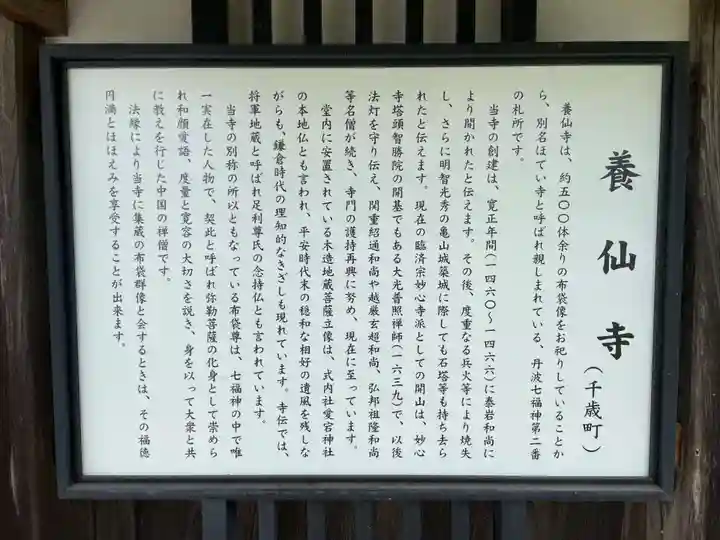 養仙寺(千歳町)
養仙寺は、約五〇〇体余りの布袋像をお祀りしていることか
ら、別名ほてい寺と呼ばれ親しまれている、丹波七福神第二番
の札所です。
当寺の創建は、寛正年間(一四六〇〜一四六六)に泰岩和尚に
より開かれたと伝えます。その後、度重なる兵火等により焼失
し、さらに明智光秀の亀山城築城に際しても石塔等も持ち去ら
れたと伝えます。現在の臨済宗妙心寺派としての開山は、妙心
寺塔頭智勝院の開基でもある大光普照禅師(一六三九)で、以後
法灯を守り伝え、関重紹通和尚や越厳玄超和尚、弘邦祖隆和尚
等名僧が続き、寺門の護持再興に努め、現在に至っています。
堂内に安置されている木造地蔵菩薩立像は、式内社愛宕神社
の本地仏とも言われ、平安時代末の穏和な相好の遺風を残しな
がらも、鎌倉時代の理知的なきざしも現れています。寺伝では、
将軍地蔵と呼ばれ足利尊氏の念持仏とも言われています。
当寺の別称の所以ともなっている布袋尊は、七福神の中で唯
一実在した人物で、契此と呼ばれ弥勒菩薩の化身として崇めら
れ和顔愛語、度量と寛容の大切さを説き、身を以って大衆と共
に教えを行じた中国の禅僧です。
法縁により当寺に集蔵の布袋群像と会するときは、その福徳
円満とほほえみを享受することが出来ます。